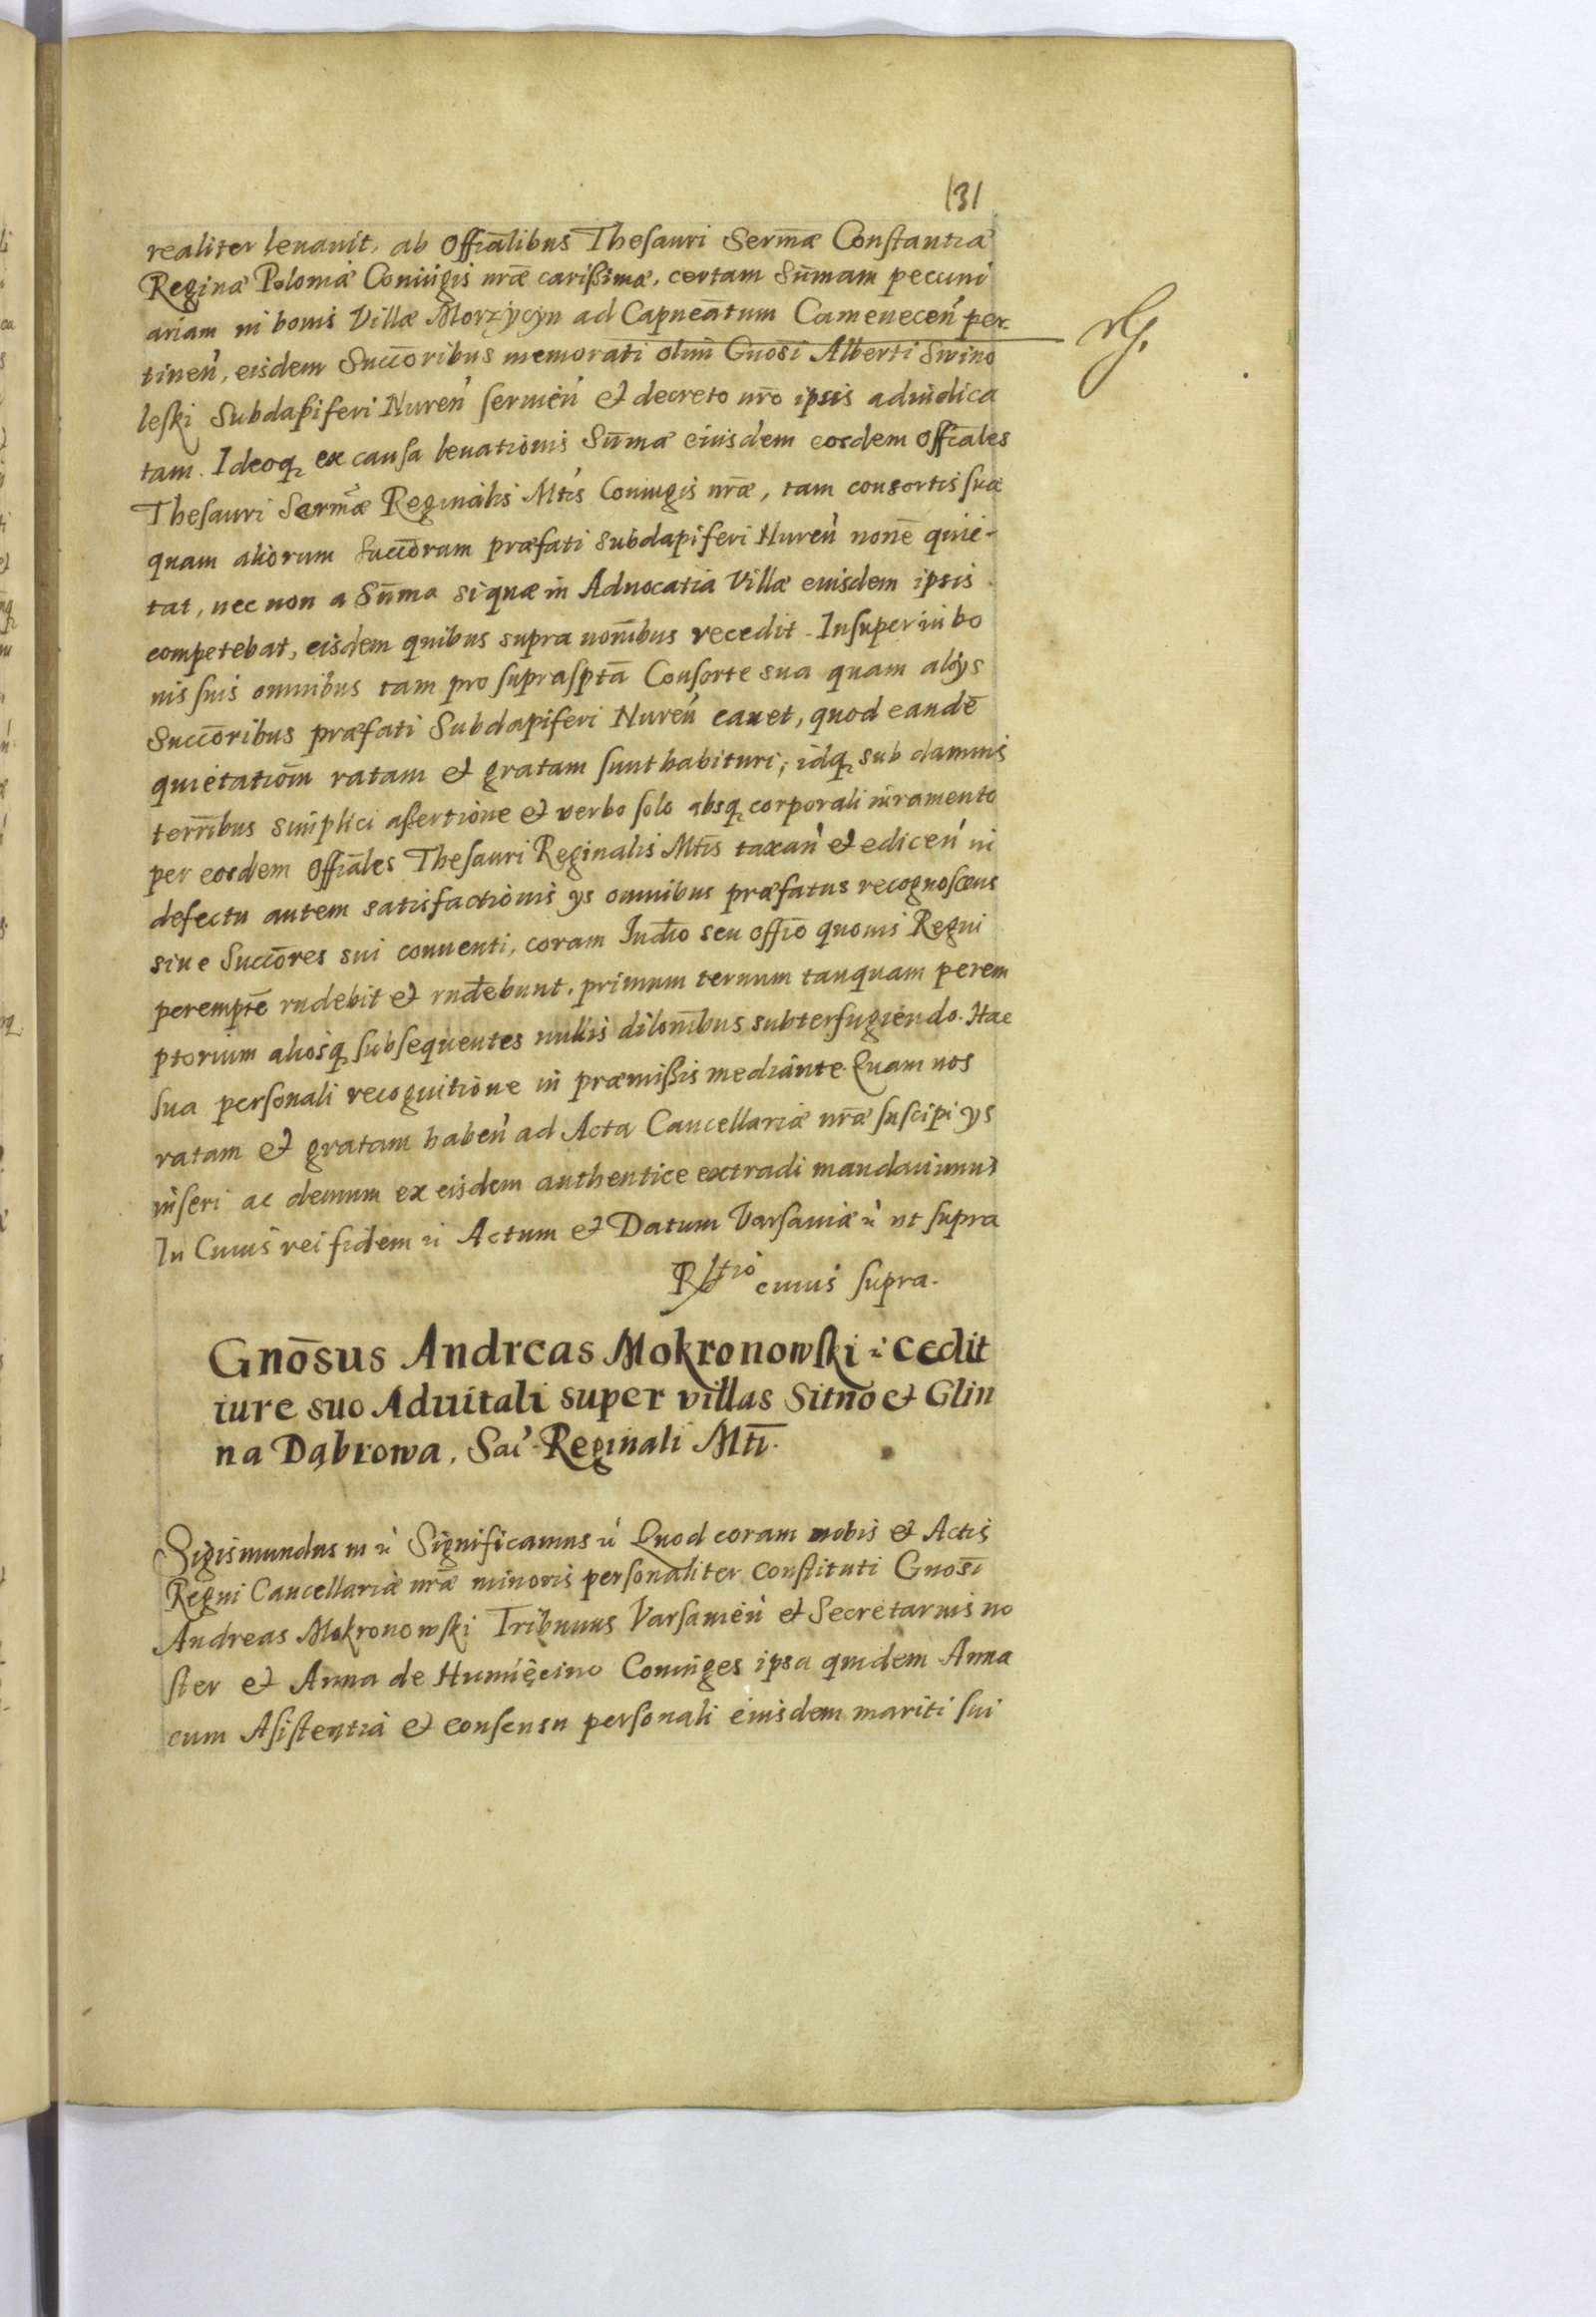 131
realiter leuauit, ab Offiālibus Thesauri Serm̄æ Constantiæ
Reginæ Poloniæ Coniugis nr̄æ carißimæ, certam Sūmam pecuni
ariam in bonis Villæ Morzÿcÿn ad Capneātum Camenecen̄ per-
tinen̄, eisdem Succōribus memorati olim Gnōsi Alberti Swino
leski Subdapiferi Nuren̄ seruien̄ et decreto nr̄o ipsis adiudica
tam. Ideoq̨ ex causa leuationis Sūmæ eiusdem eosdem Offiāles
Thesauri Serm̄æ Reginalis Mt̄is Coniugis nr̄æ, tam consortis suæ
quam aliorum Succōrum præfati Subdapiferi Nuren̄ nonē quie-
tat, nec non a Sūma si quæ in Aduocatia Villæ eiusdem ipsis
competebat, eisdem quibus supra nonībus recedit. Insuper in bo
nis suis omnibus tam pro suprasptā Consorte sua quam alijs
Succōribus præfati Subdapiferi Nuren̄ cauet, quod eandē
quietatiōm ratam et gratam sunt habituri, idq̨ sub damnis
terrībus simplici aßertione et verbo solo absq̨ corporali iuramento
per eosdem Offiāles Thesauri Reginalis Mt̄is taxan̄ et edicen̄ in
defectu autem satisfactionis ys omnibus præfatus recognoscens
siue Succōres sui conuenti, coram Iudīo seu offīo quouis Regni
peremptē rn̄debit et rn̄debunt, primum ternum tanquam perem
ptorium aliosq̨ subsequentes nullis dilonībus subterfugiendo. Hac
sua personali recognitione in præmißis mediante. Quam nos
ratam et gratam haben̄ ad Acta Cancellariæ nr̄æ suscipi ys
inseri ac demum ex eisdem authentice extradi mandauimus
In Cuius rei fidem &c Actum et Datum Varsauiæ &c ut supra
Rltio cuius supra.
Gnōsus Andreas Mokronowski &c cedit
iure suo Aduitali super villas Sitno et Glin
na Dąbrowa, Sac̄ Reginali Mt̄i.
Sigismundus III &c Significamus &c Quod coram nobis et Actis
Regni Cancellariæ nr̄æ minoris personaliter constituti Gnōsi
Andreas Mokronowski Tribunus Varsauien̄ et Secretarius no
ster et Anna de Humięcino Coniuges ipsa quidem Anna
cum Asistentia et consensu personali eiusdem mariti sui